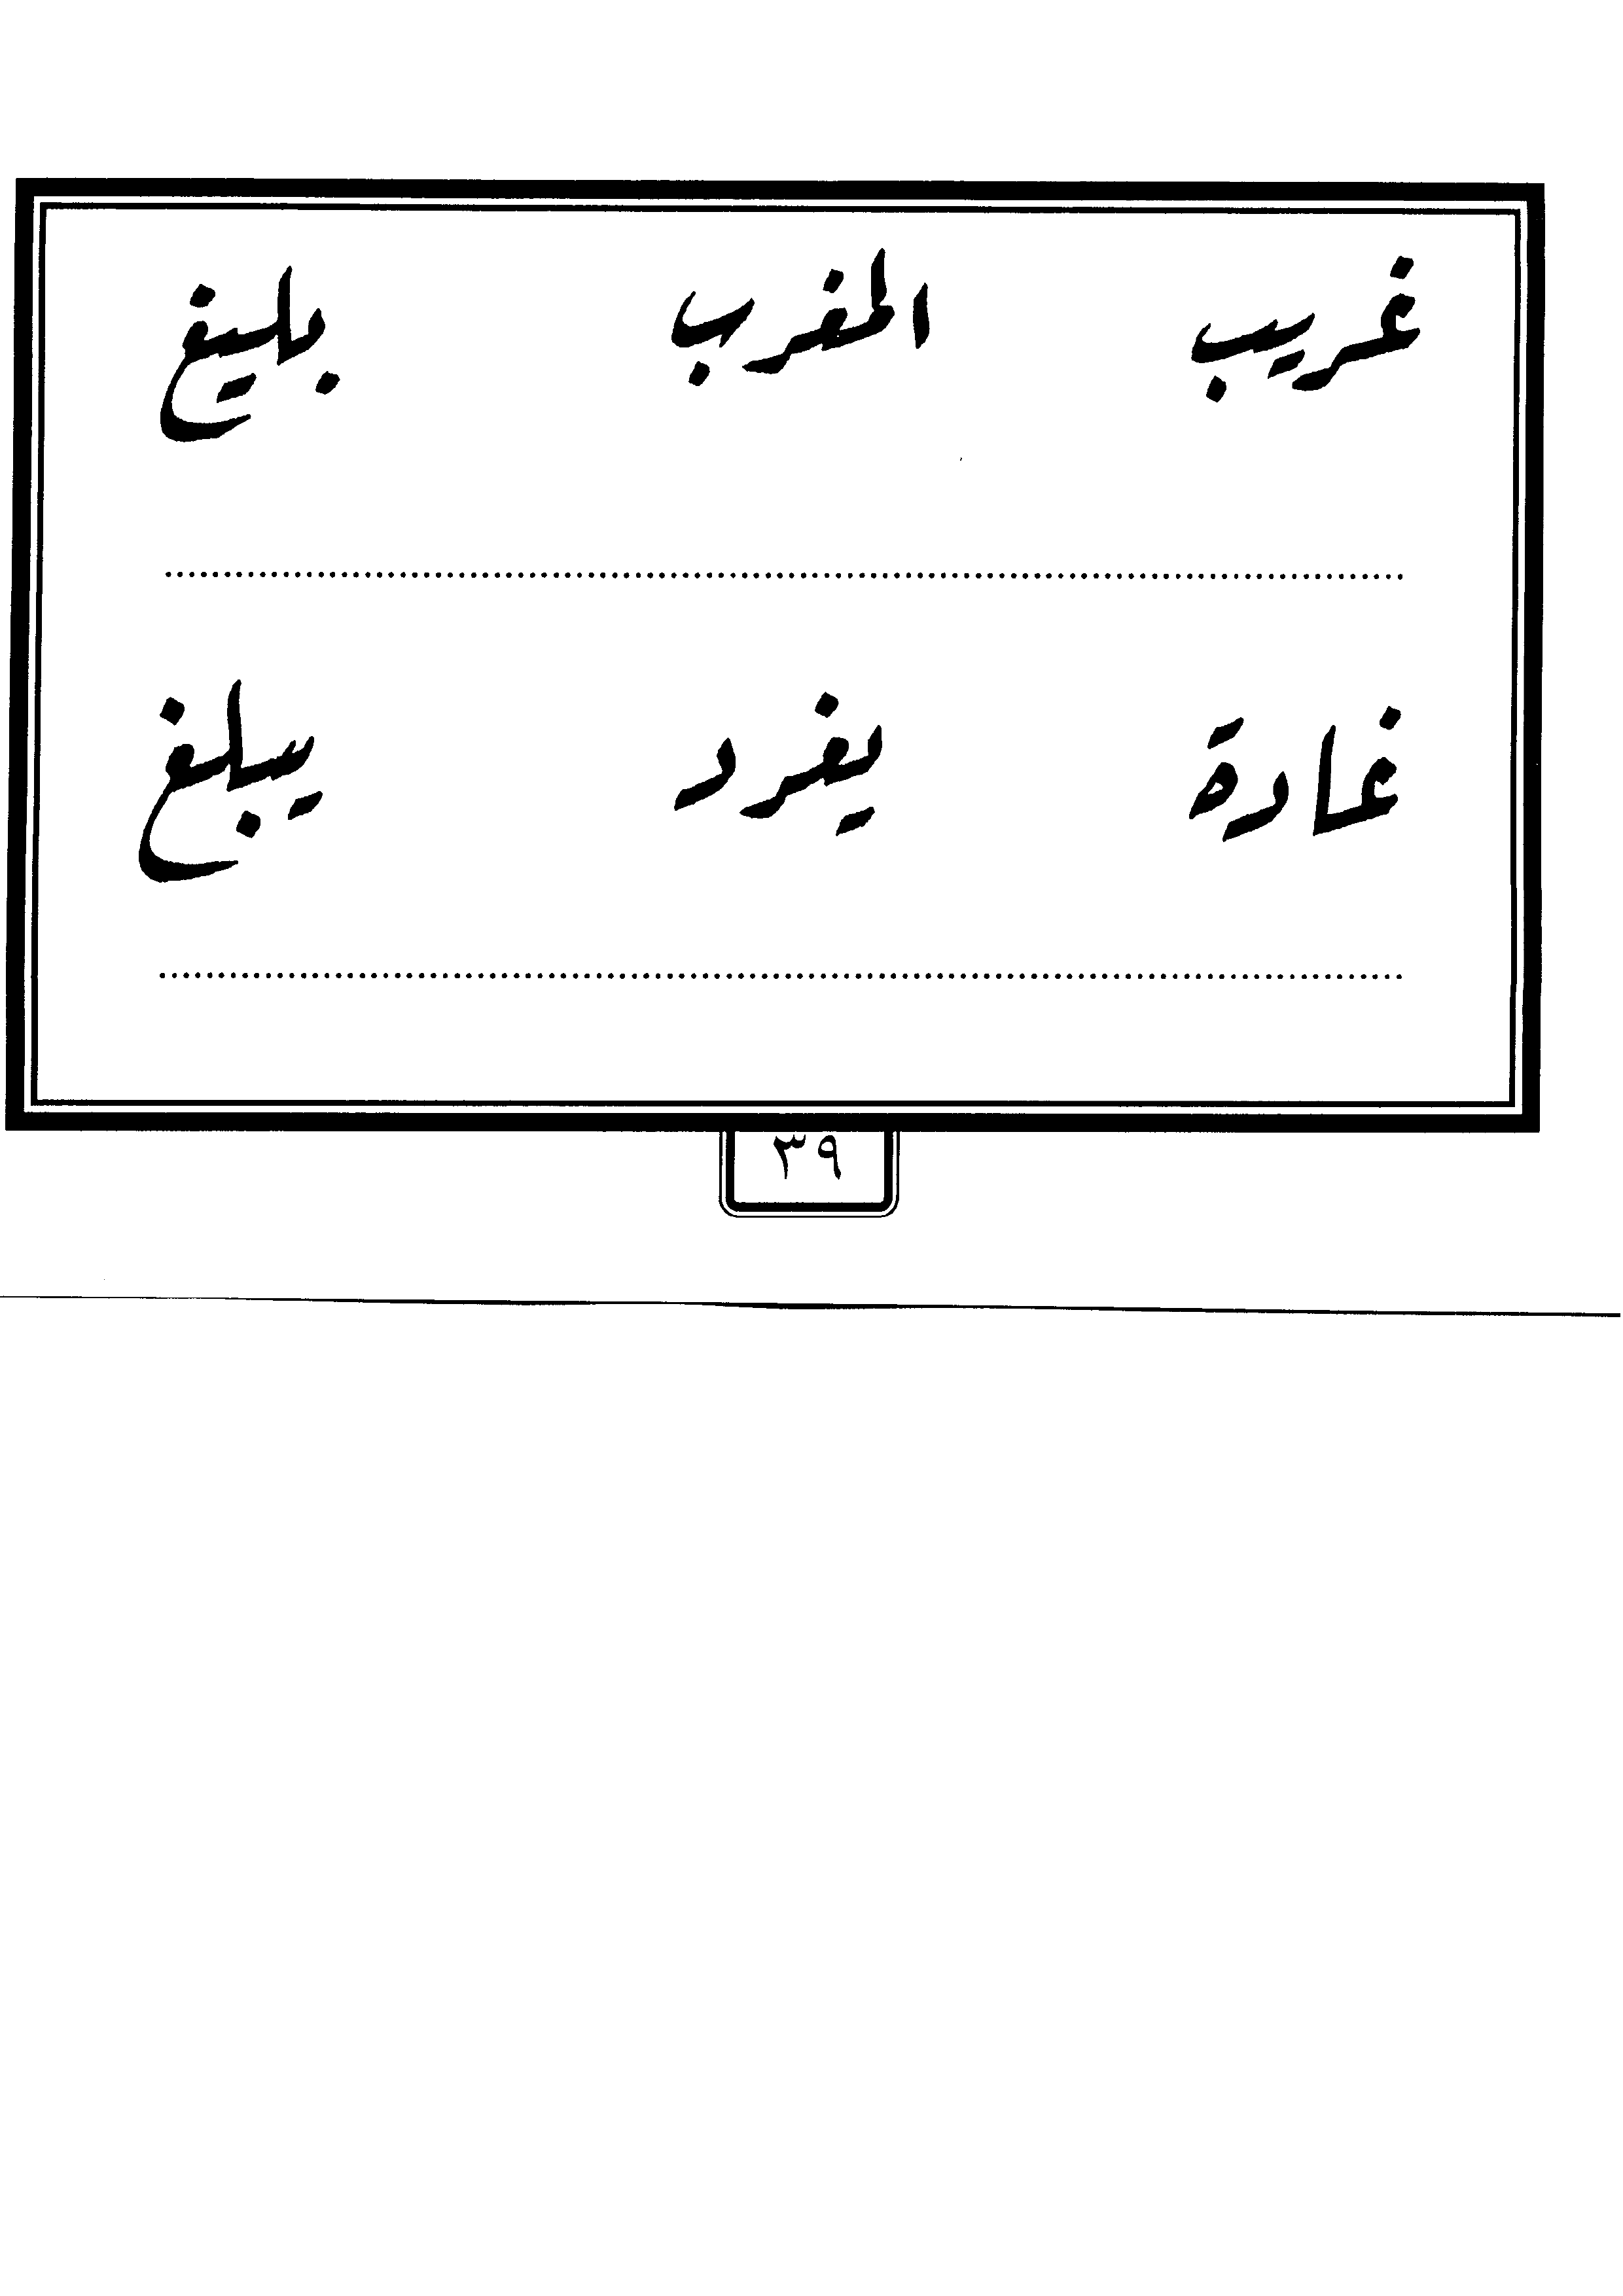 غريب المغرب بليغ
غادة يغرد يبلغ
٣٩